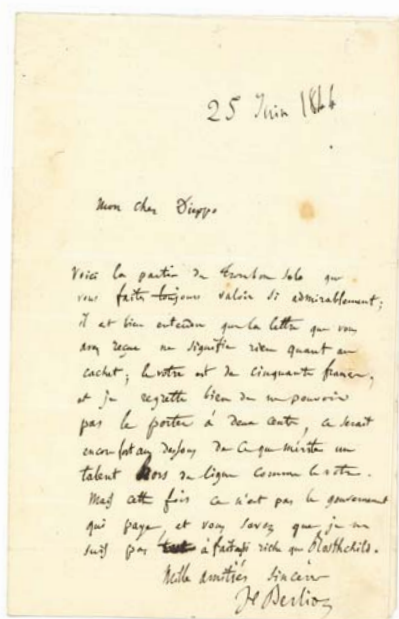 25 Juin 1844
Mon cher Dieppo
Voici la partie de trombone solo que
vous faites toujours valoir si admirablement;
il est bien entendu que la lettre que vous
avez reçue ne signifie rien quant au
cachet; le votre est de cinquante francs,
et je regrette bien de ne pouvoir
pas le porter à deux cents, ce serait
encore fort au dessous de ce que mérite un
talent hors de ligne comme le votre.
Mais cette fois ce n'est pas le gouvernement
qui paye, et vous savez que je ne
suis pas à fait riche que Rothschild.
Mille amitiés sincères
H Berlioz